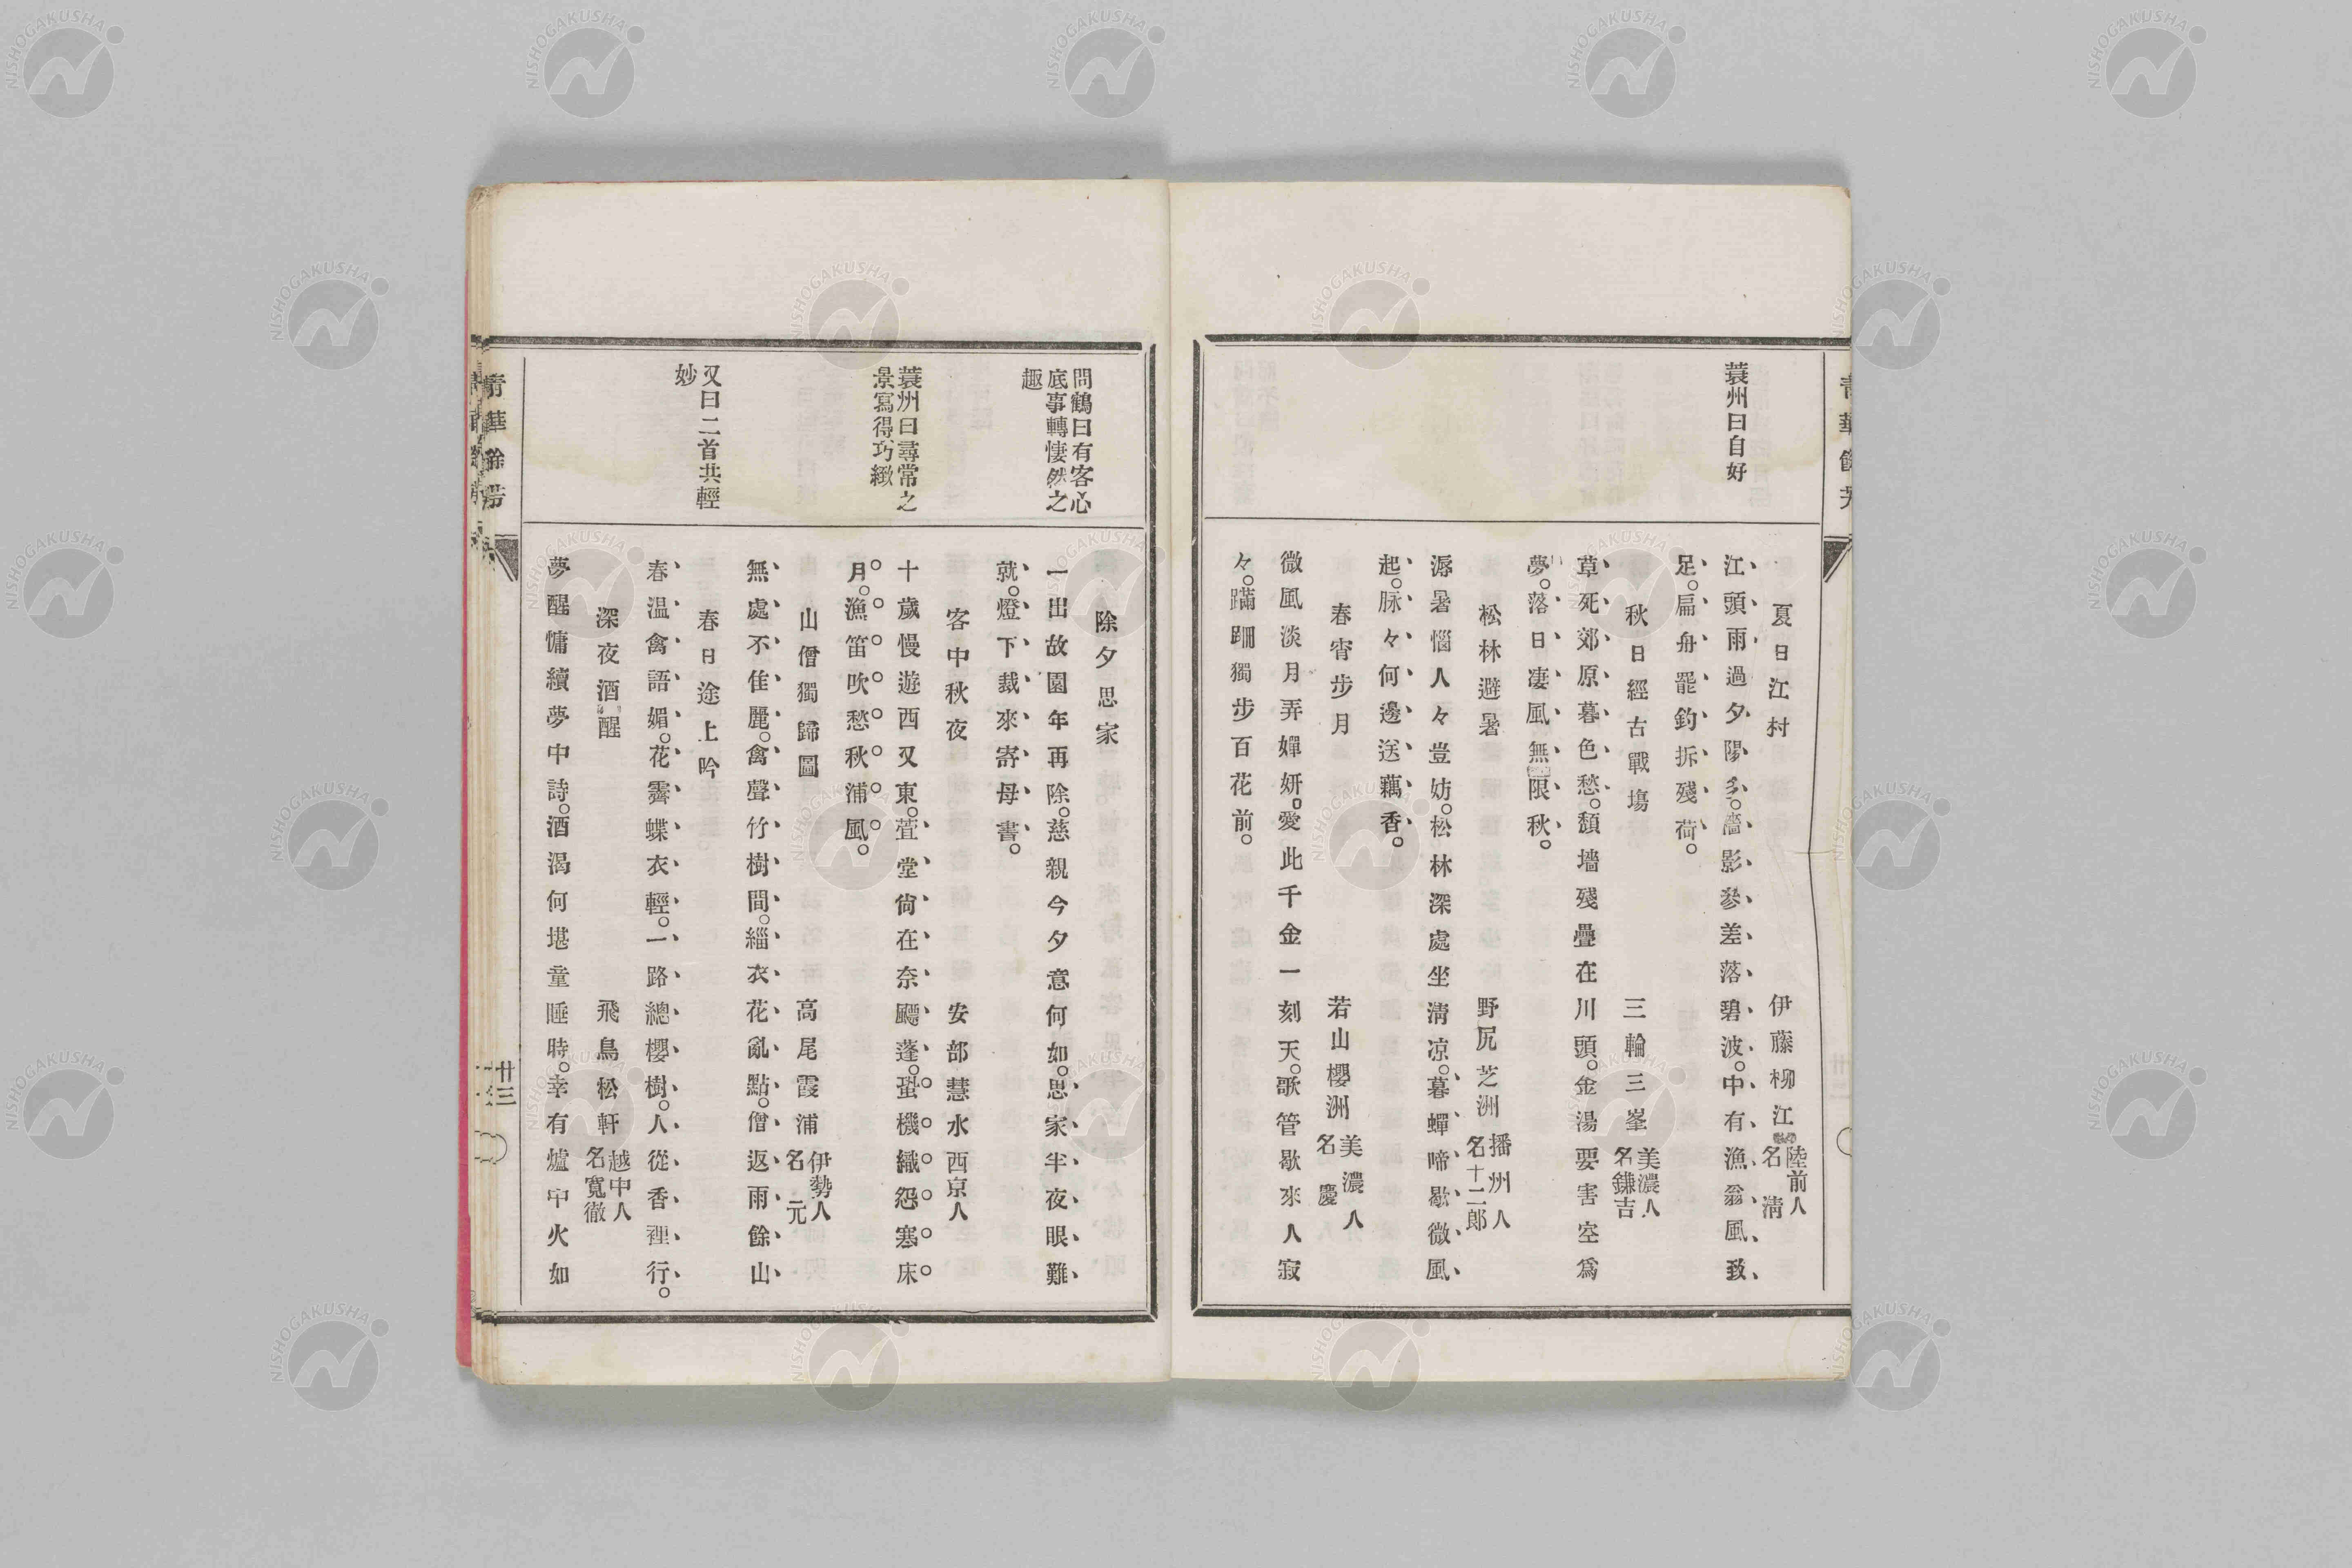 蓑州曰自好
夏日江村 伊藤柳江 陸前人名淸
江頭雨過夕陽多。檣影參差落碧波。中有漁翁風致
足。扁舟罷釣拆殘荷。
秋日經古戰塲 三輪三峯 美濃人名鎌吉
草死郊原暮色愁。頽墻殘疊在川頭。金湯要害空爲
夢。落日凄風無限秋。
松林避暑 野尻芝洲 播州人名十二郎
溽暑惱人々豈妨。松林深處坐淸凉。暮蟬啼歇微風
起。脉々何邊送藕香。
春宵步月 若山櫻洲 美濃人名慶
微風淡月弄嬋妍。愛此千金一刻天。歌管歇來人寂
々。蹣跚獨步百花前。
問鶴曰有客心
底事轉悽然之
趣
除夕思家
一出故園年再除。慈親今夕意何如。思家半夜眠難
就。燈下裁來寄母書。
蓑州曰尋常之
景寫得巧緻
客中秋夜 安部慧水 西京人
十歲慢遊西又東。萱堂尙在奈飄蓬。蛩機織怨寒床
月。漁笛吹愁秋浦風。
山僧獨歸圖 高尾霞浦 伊勢人名元
無處不佳麗。禽聲竹樹間。緇衣花亂點。僧返雨餘山
又曰二首共輕
妙
春日途上吟
春温禽語媚。花霽蝶衣輕。一路總櫻樹。人從香裡行。
深夜酒醒 飛鳥松軒 越中人名寬徹
夢醒慵續夢中詩。酒渴何堪童睡時。幸有爐中火如
靑華餘芳
廿三